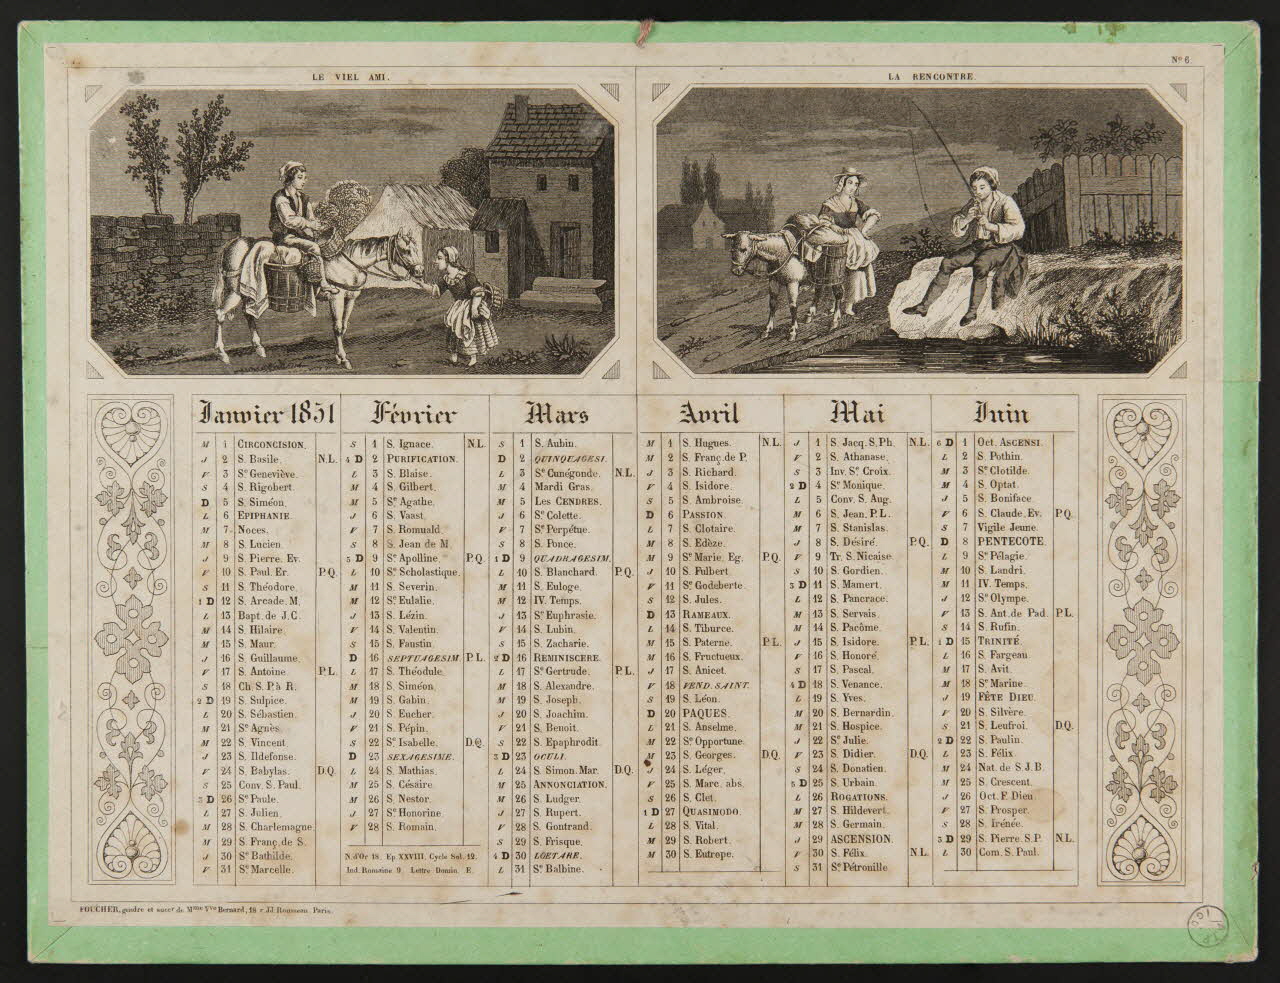 Nº 6.
LE VIEL AMI.
LA RENCONTRE.
Janvier 1851
M 1 CIRCONCISION.
J 2 S. Basile. N.L.
V 3 Sᵉ Geneviève.
S 4 S. Rigobert.
D 5 S. Siméon.
L 6 EPIPHANIE.
M 7 Noces.
M 8 S. Lucien.
J 9 S. Pierre. Ev.
V 10 S. Paul. Er. P.Q.
S 11 S. Théodore.
1 D 12 S. Arcade. M.
L 13 Bapt. de J.C.
M 14 S. Hilaire.
M 15 S. Maur.
J 16 S. Guillaume.
V 17 S. Antoine. P.L.
S 18 Ch. S. P. à R.
2 D 19 S. Sulpice.
L 20 S. Sébastien.
M 21 Sᵉ Agnès.
M 22 S. Vincent.
J 23 S. Ildefonse.
V 24 S. Babylas. D.Q.
S 25 Conv. S. Paul.
3 D 26 Sᵉ Paule.
L 27 S. Julien.
M 28 S. Charlemagne.
M 29 S. Franç. de S.
J 30 Sᵉ Bathilde.
V 31 Sᵉ Marcelle.
Février
S 1 S. Ignace. N.L.
4 D 2 PURIFICATION.
L 3 S. Blaise.
M 4 S. Gilbert.
M 5 Sᵉ Agathe.
J 6 S. Vaast.
V 7 S. Romuald.
S 8 S. Jean de M.
5 D 9 Sᵉ Apolline. P.Q.
L 10 Sᵉ Scholastique.
M 11 S. Severin.
M 12 Sᵉ Eulalie.
J 13 S. Lézin.
V 14 S. Valentin.
S 15 S. Faustin.
D 16 SEPTUAGESIM. P.L.
L 17 S. Théodule.
M 18 S. Siméon.
M 19 S. Gabin.
J 20 S. Eucher.
V 21 S. Pépin.
S 22 Sᵉ Isabelle. D.Q.
D 23 SEXAGESIME.
L 24 S. Mathias.
M 25 S. Césaire.
M 26 S. Nestor.
J 27 Sᵉ Honorine.
V 28 S. Romain.
N. d'Or 18. Ep. XXVIII. Cycle Sol. 12.
Ind. Romaine 9. Lettre Domin. E.
Mars
S 1 S. Aubin.
D 2 QUINQUAGESI.
L 3 Sᵉ Cunégonde. N.L.
M 4 Mardi Gras.
M 5 Les CENDRES.
J 6 Sᵉ Colette.
V 7 Sᵉ Perpétue.
S 8 S. Ponce.
1 D 9 QUADRAGESIM.
L 10 S. Blanchard. P.Q.
M 11 S. Euloge.
M 12 IV. Temps.
J 13 Sᵉ Euphrasie.
V 14 S. Lubin.
S 15 S. Zacharie.
2 D 16 REMINISCERE.
L 17 Sᵉ Gertrude. P.L.
M 18 S. Alexandre.
M 19 S. Joseph.
J 20 S. Joachim.
V 21 S. Benoit.
S 22 S. Epaphrodit.
3 D 23 OCULI.
L 24 S. Simon. Mar. D.Q.
M 25 ANNONCIATION.
M 26 S. Ludger.
J 27 S. Rupert.
V 28 S. Gontrand.
S 29 S. Frisque.
4 D 30 LŒTARE.
L 31 Sᵉ Balbine.
Avril
M 1 S. Hugues. N.L.
M 2 S. Franç. de P.
J 3 S. Richard.
V 4 S. Isidore.
S 5 S. Ambroise.
D 6 PASSION.
L 7 S. Clotaire.
M 8 S. Edèze.
M 9 Sᵉ Marie. Eg. P.Q.
J 10 S. Fulbert.
V 11 Sᵉ Godeberte
S 12 S. Jules.
D 13 RAMEAUX.
L 14 S. Tiburce.
M 15 S. Paterne. P.L.
M 16 S. Fructueux.
J 17 S. Anicet.
V 18 VEND. SAINT.
S 19 S. Léon.
D 20 PAQUES.
L 21 S. Anselme.
M 22 Sᵉ Opportune.
M 23 S. Georges. D.Q.
J 24 S. Léger.
V 25 S. Marc. abs.
S 26 S. Clet.
1 D 27 QUASIMODO.
L 28 S. Vital.
M 29 S. Robert.
M 30 S. Eutrope.
Mai
J 1 S. Jacq. S. Ph. N.L.
V 2 S. Athanase.
S 3 Inv. Sᵉ Croix.
2 D 4 Sᵉ Monique.
L 5 Conv. S. Aug.
M 6 S. Jean. P.L.
M 7 S. Stanislas.
J 8 S. Désiré. P.Q.
V 9 Tr. S. Nicaise.
S 10 S. Gordien.
3 D 11 S. Mamert.
L 12 S. Pancrace.
M 13 S. Servais.
M 14 S. Pacôme.
J 15 S. Isidore. P.L.
V 16 S. Honoré.
S 17 S. Pascal.
4 D 18 S. Venance.
L 19 S. Yves.
M 20 S. Bernardin.
M 21 S. Hospice.
J 22 Sᵉ Julie.
V 23 S. Didier. D.Q.
S 24 S. Donatien.
5 D 25 S. Urbain.
L 26 ROGATIONS.
M 27 S. Hildevert.
M 28 S. Germain.
J 29 ASCENSION.
V 30 S. Félix. N.L.
S 31 Sᵉ Pétronille
Juin
6 D 1 Oct. ASCENSI.
L 2 S. Pothin.
M 3 Sᵉ Clotilde.
M 4 S. Optat.
J 5 S. Boniface.
V 6 S. Claude. Ev. P.Q.
S 7 Vigile Jeune.
D 8 PENTECOTE.
L 9 Sᵉ Pélagie.
M 10 S. Landri.
M 11 IV. Temps.
J 12 Sᵉ Olympe.
V 13 S. Ant. de Pad. P.L.
S 14 S. Rufin.
1 D 15 TRINITÉ.
L 16 S. Fargeau
M 17 S. Avit.
M 18 Sᵉ Marine.
J 19 FÊTE DIEU.
V 20 S. Silvère.
S 21 S. Leufroi. D.Q.
2 D 22 S. Paulin.
L 23 S. Félix.
M 24 Nat. de S. J.B.
M 25 S. Crescent.
J 26 Oct. F. Dieu.
V 27 S. Prosper.
S 28 S. Irénée.
3 D 29 S. Pierre. S. P. N.L.
L 30 Com. S. Paul.
FOUCHER, gendre et succʳ de Mᵐᵉ Vᵛᵉ Bernard, 18 r. J.J. Rousseau. Paris.